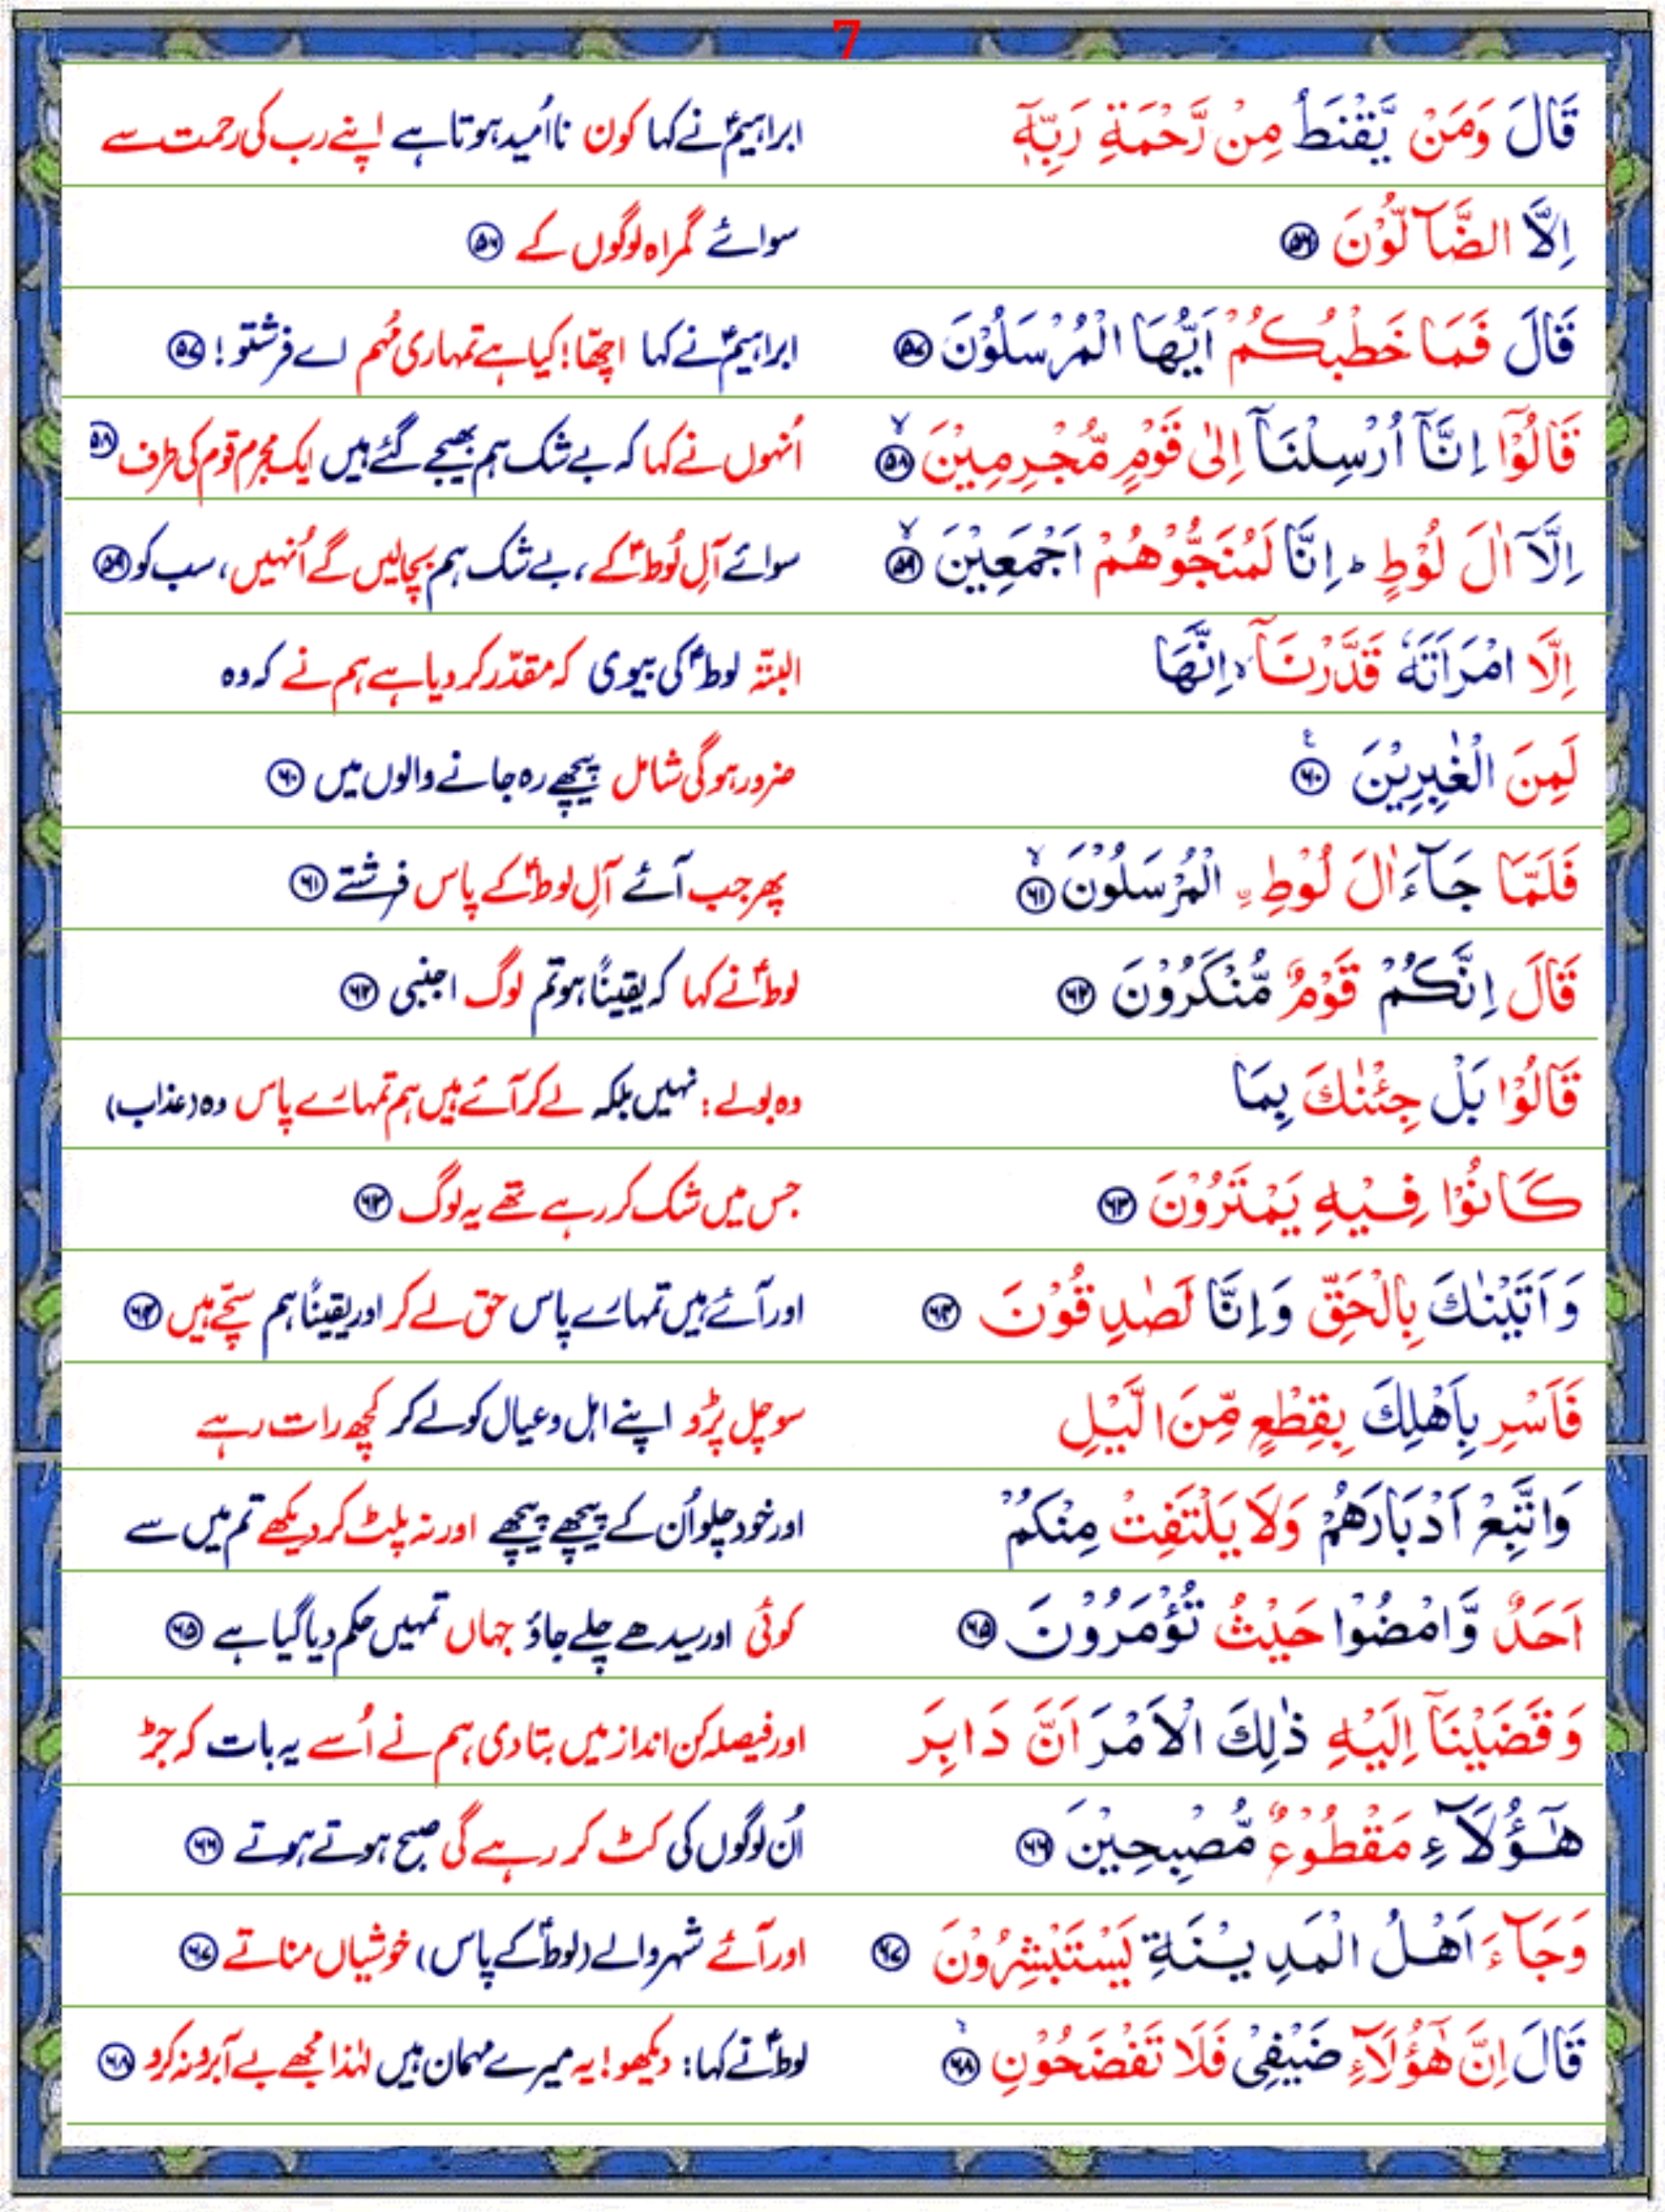 7
قَالَ وَمَنْ يَّقْنَطُ مِنْ رَّحْمَةِ رَبِّهٖۤ ابراہیمؑ نے کہا کون نااُمید ہوتا ہے اپنے رب کی رحمت سے
اِلَّا الضَّآلُّوْنَ ۵۶ سوائے گمراہ لوگوں کے ۵۶
قَالَ فَمَا خَطْبُكُمْ اَيُّهَا الْمُرْسَلُوْنَ ۵۷ ابراہیمؑ نے کہا اچھّا! کیا ہے تمہاری مُہم اے فرشتو! ۵۷
قَالُوْۤا اِنَّاۤ اُرْسِلْنَاۤ اِلٰى قَوْمٍ مُّجْرِمِيْنَ ۵۸ اُنہوں نے کہا کہ بے شک ہم بھیجے گئے ہیں ایک مجرم قوم کی طرف ۵۸
اِلَّاۤ اٰلَ لُوْطٍ ؕ اِنَّا لَمُنَجُّوْهُمْ اَجْمَعِيْنَ ۵۹ سوائے آلِ لُوطؑ کے، بے شک ہم بچالیں گے اُنہیں، سب کو ۵۹
اِلَّا امْرَاَتَهٗ قَدَّرْنَاۤ ۙ اِنَّهَا البتّہ لوطؑ کی بیوی کہ مقدّر کر دیا ہے ہم نے کہ وہ
لَمِنَ الْغٰبِرِيْنَ ۶۰ ضرور ہوگی شامل پیچھے رہ جانے والوں میں ۶۰
فَلَمَّا جَآءَ اٰلَ لُوْطِ ۣ الْمُرْسَلُوْنَ ۶۱ پھر جب آئے آلِ لوطؑ کے پاس فرشتے ۶۱
قَالَ اِنَّكُمْ قَوْمٌ مُّنْكَرُوْنَ ۶۲ لوطؑ نے کہا کہ یقیناً ہو تم لوگ اجنبی ۶۲
قَالُوْا بَلْ جِئْنٰكَ بِمَا وہ بولے: نہیں بلکہ لے کر آئے ہیں ہم تمہارے پاس وہ (عذاب)
كَانُوْا فِيْهِ يَمْتَرُوْنَ ۶۳ جس میں شک کر رہے تھے یہ لوگ ۶۳
وَاَتَيْنٰكَ بِالْحَقِّ وَاِنَّا لَصٰدِقُوْنَ ۶۴ اور آئے ہیں تمہارے پاس حق لے کر اور یقیناً ہم سچّے ہیں ۶۴
فَاَسْرِ بِاَهْلِكَ بِقِطْعٍ مِّنَ الَّيْلِ سو چل پڑو اپنے اہل و عیال کو لے کر کچھ رات رہے
وَاتَّبِعْ اَدْبَارَهُمْ وَلَا يَلْتَفِتْ مِنْكُمْ اور خود چلو اُن کے پیچھے پیچھے اور نہ پلٹ کر دیکھے تم میں سے
اَحَدٌ وَّامْضُوْا حَيْثُ تُؤْمَرُوْنَ ۶۵ کوئی اور سیدھے چلے جاؤ جہاں تمہیں حکم دیا گیا ہے ۶۵
وَقَضَيْنَاۤ اِلَيْهِ ذٰلِكَ الْاَمْرَ اَنَّ دَابِرَ اور فیصلہ کن انداز میں بتا دی ہم نے اُسے یہ بات کہ جڑ
هٰۤؤُلَآءِ مَقْطُوْعٌ مُّصْبِحِيْنَ ۶۶ اُن لوگوں کی کٹ کر رہے گی صبح ہوتے ہوتے ۶۶
وَجَآءَ اَهْلُ الْمَدِيْنَةِ يَسْتَبْشِرُوْنَ ۶۷ اور آئے شہر والے (لوطؑ کے پاس) خوشیاں مناتے ۶۷
قَالَ اِنَّ هٰۤؤُلَآءِ ضَيْفِيْ فَلَا تَفْضَحُوْنِ ۶۸ لوطؑ نے کہا: دیکھو! یہ میرے مہمان ہیں لہٰذا مجھے بے آبرو نہ کرو ۶۸